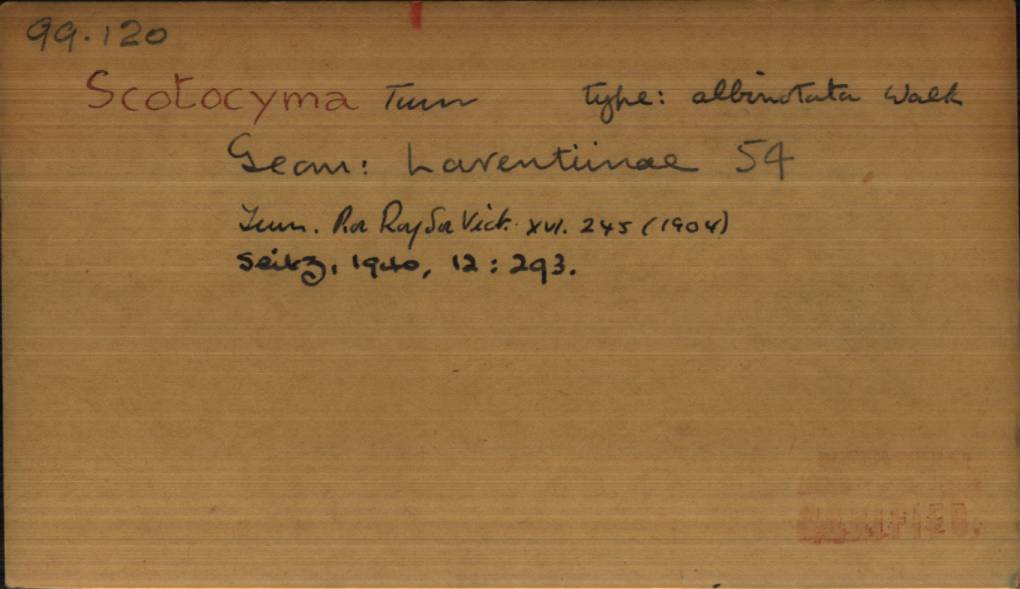 99.120
Scotocyma Turn type: albinotata Walk
Geom: Larentiinae 54
Turn. Roy Vict. XVI. 245 (1904)
Seitz, 1940, 12: 293.